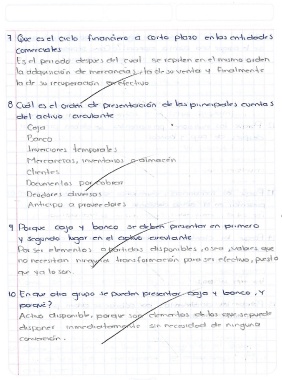 7 Que es el ciclo financiero a corto plazo en las entidades
comerciales
Es el periodo despues del cual se repiten en el mismo orden
la adquisición de mercancias, la de su venta y finalmente
la de su recuperación en efectivo
8 Cuál es el orden de presentación de las principales cuentas
del activo circulante
Caja
Banco
Inversiones temporales
Mercancias, inventarios o almacén
Clientes
Documentos por cobrar
Deudores diversos
Anticipo a proveedores
9 Porque caja y banco se deben presentar en primero
y segundo lugar en el activo circulante
Por ser elementos o partidas disponibles, o sea, valores que
no necesitan ninguna transformación para ser efectivo, puesto
que ya lo son.
10 En que otro grupo se pueden presentar caja y banco, y
porqué?
Activo disponible, porque son elementos de los que se puede
disponer inmediatamente sin necesidad de ninguna
conversión.